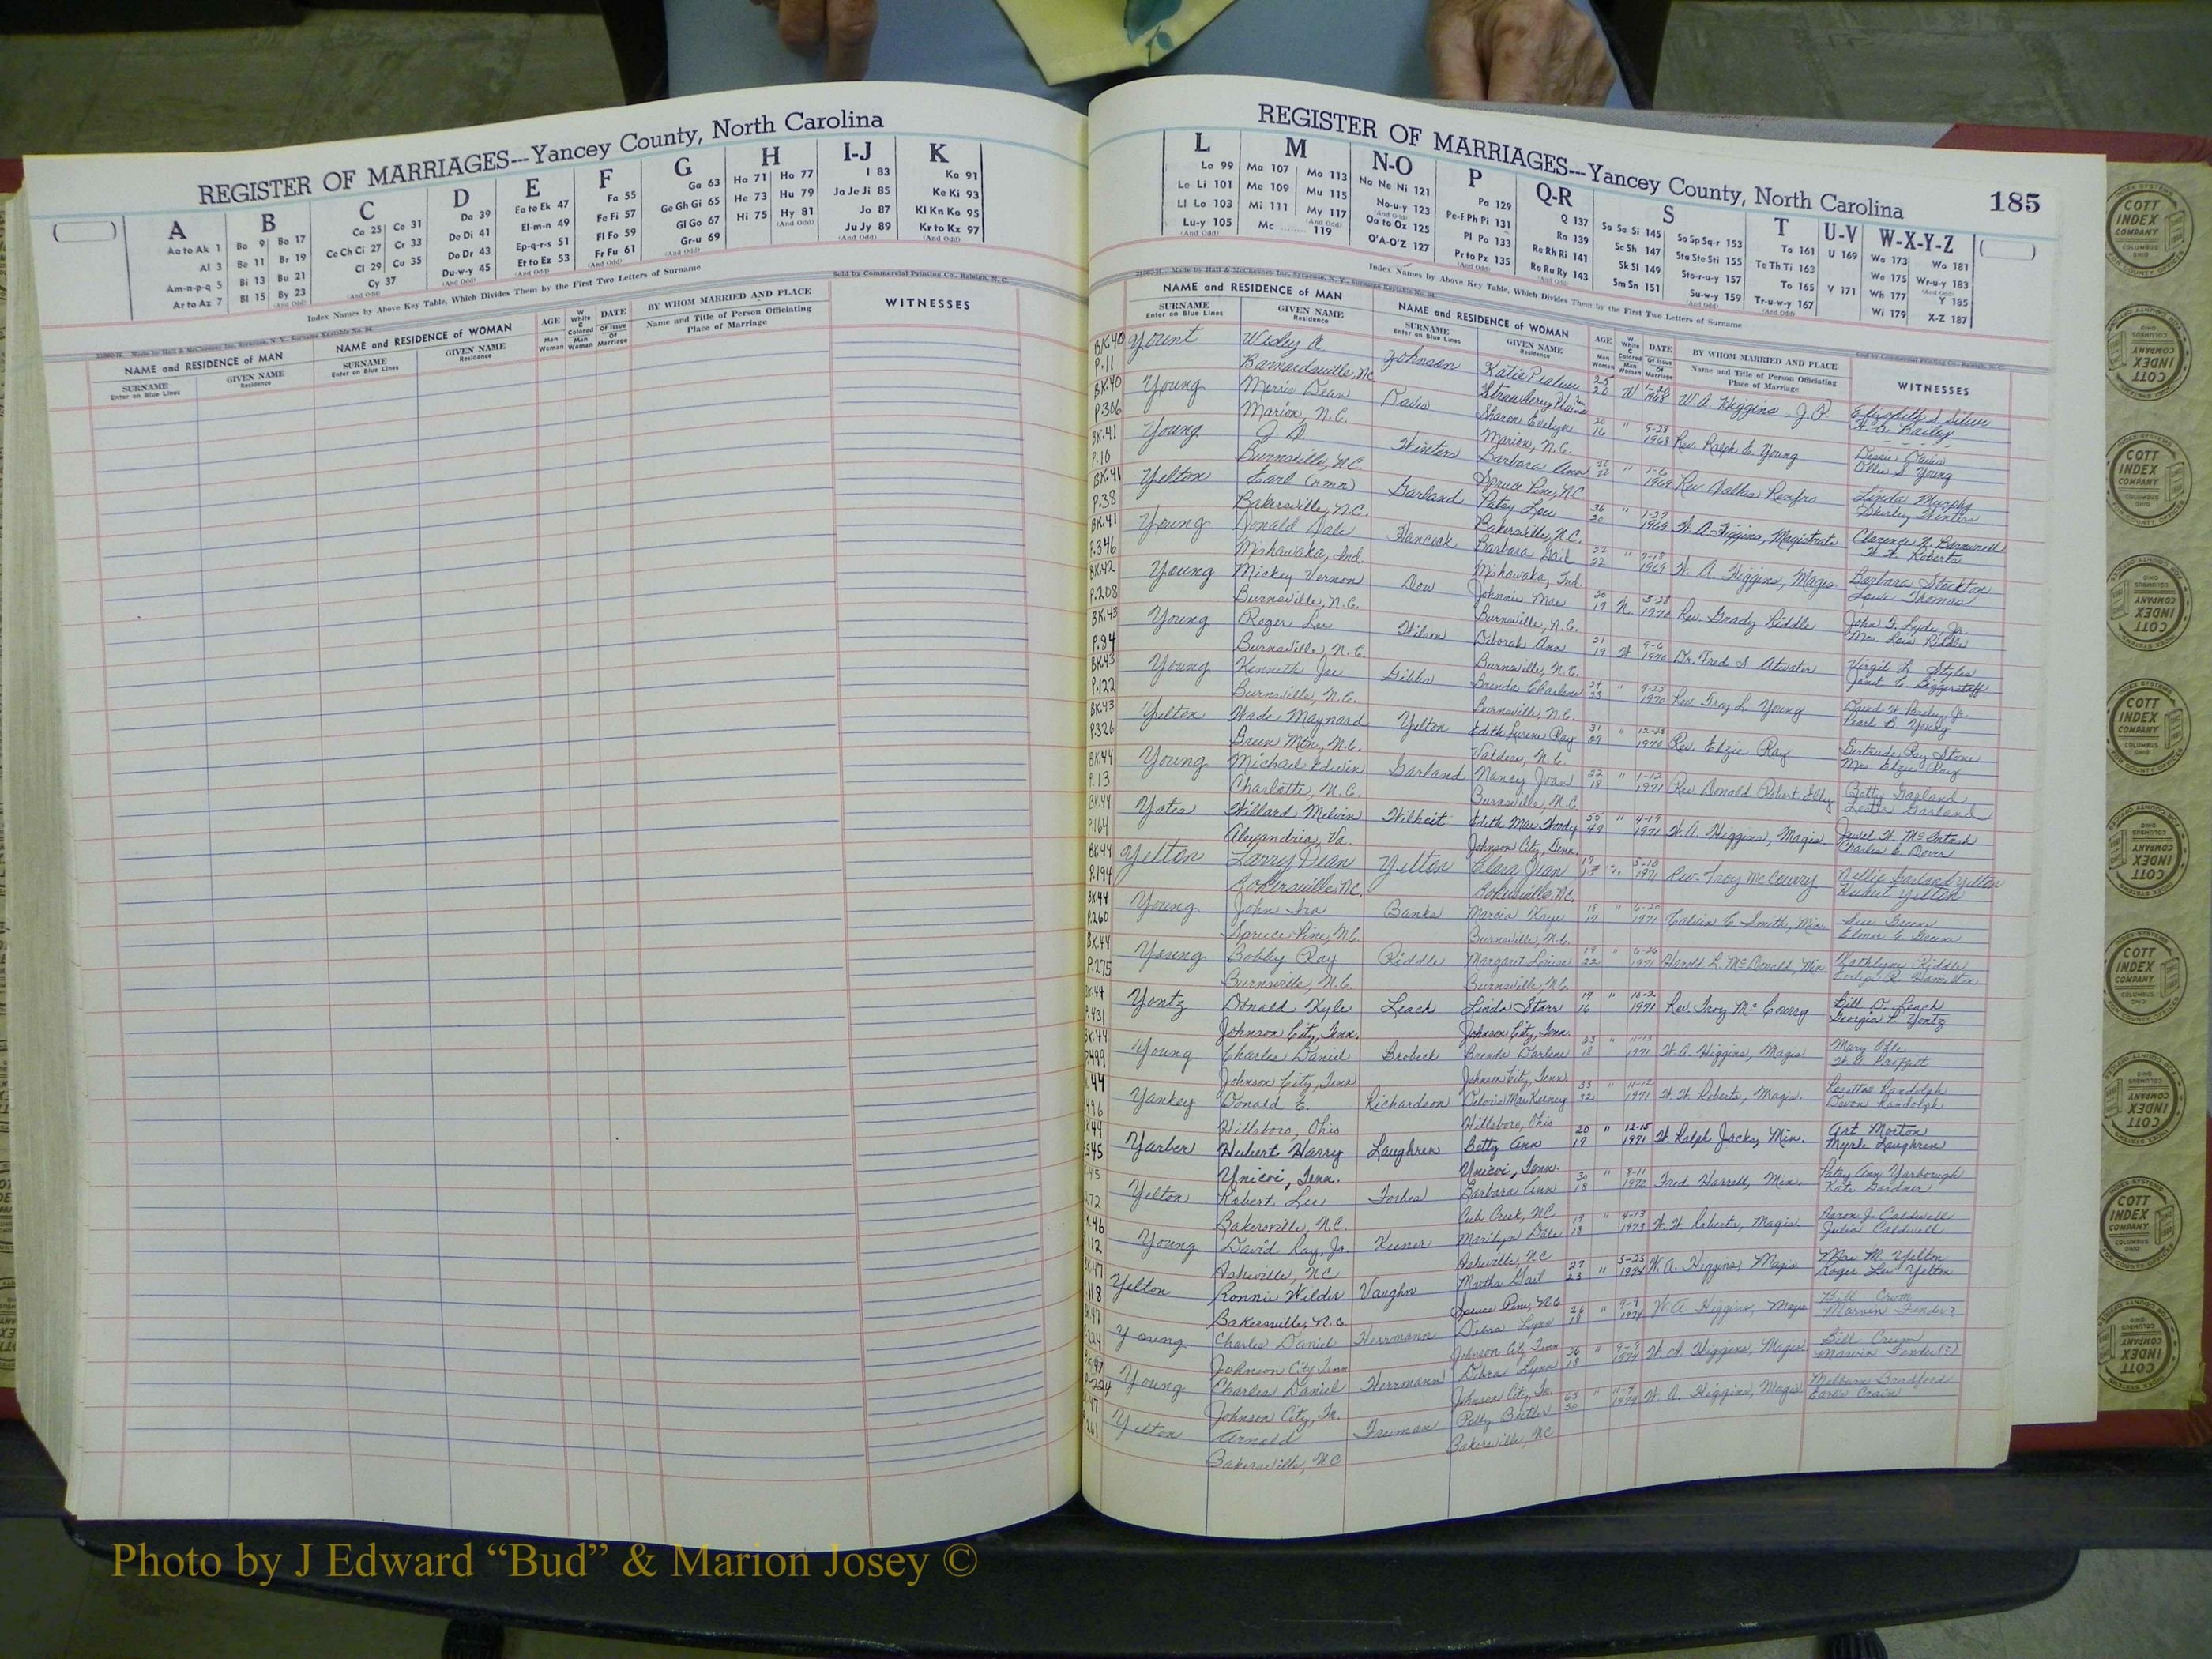 REGISTER OF MARRIAGES---Yancey County, North Carolina
A B C D E F G H I-J K
Aa to Ak 1 Ba 9 Bo 17 Ca 25 Co 31 Da 39 Ea to Ek 47 Fa 55 Ga 63 Ha 71 Ho 77 I 83 Ka 91
Al 3 Be 11 Br 19 Ce Ch Ci 27 Cr 33 De Di 41 El-m-n 49 Fe Fi 57 Ge Gh Gi 65 He 73 Hu 79 Ja Je Ji 85 Ke Ki 93
Am-n-p-q 5 Bi 13 Bu 21 Cl 29 Cu 35 Do Dr 43 Ep-q-r-s 51 Fl Fo 59 Gl Go 67 Hi 75 Hy 81 Jo 87 Kl Kn Ko 95
Ar to Az 7 Bl 15 By 23 Cy 37 Du-w-y 45 Et to Ez 53 Fr Fu 61 Gr-u 69 Ju Jy 89 Kr to Kz 97
Index Names by Above Key Table, Which Divides Them by the First Two Letters of Surname
Sold by Commercial Printing Co., Raleigh, N. C.
NAME and RESIDENCE of MAN
NAME and RESIDENCE of WOMAN
AGE
DATE
BY WHOM MARRIED AND PLACE
Name and Title of Person Officiating
Place of Marriage
WITNESSES
SURNAME
Enter on Blue Lines
GIVEN NAME
Residence
REGISTER OF MARRIAGES---Yancey County, North Carolina
185
L M N-O P Q-R S T U-V W-X-Y-Z
La 99 Ma 107 Mo 113 Na Ne Ni 121 Pa 129 Q 137 Sa Se Si 145 So Sp Sq-r 153 Ta 161 U 169 Wa 173 Wo 181
Le Li 101 Me 109 Mu 115 No-u-y 123 Pe-f Ph Pi 131 Ra 139 Sc Sh 147 Sta Ste Sti 155 Te Th Ti 163 We 175 Wr-u-y 183
Ll Lo 103 Mi 111 My 117 Oa to Oz 125 Pl Po 133 Re Rh Ri 141 Sk Sl 149 Sto-r-u-y 157 To 165 V 171 Wh 177 Y 185
Lu-y 105 Mc 119 O'A-O'Z 127 Pr to Pz 135 Ro Ru Ry 143 Sm Sn 151 Su-w-y 159 Tr-u-w-y 167 Wi 179 X-Z 187
Index Names by Above Key Table, Which Divides Them by the First Two Letters of Surname
NAME and RESIDENCE of MAN
NAME and RESIDENCE of WOMAN
AGE
DATE
BY WHOM MARRIED AND PLACE
Name and Title of Person Officiating
Place of Marriage
WITNESSES
SURNAME
Enter on Blue Lines
GIVEN NAME
Residence
BK.40 Yount Wesley A Johnson Katie 25 W 1-20 W. A. Higgins, J. P. Elizabeth Silver
P.11 Barnardsville, NC Strawberry Plains 20 1968 Bailey
BK.40 Young Morris Dean Davis Sharon Evelyn 20 " 9-28 Rev. Ralph E. Young Davis
P.306 Marion, N.C. Marion, N.C. 16 1968 Ollie S. Young
BK.41 Young J. D. Winters Barbara Ann " 1-6 Rev. Dallas Renfro Linda Murphy
P.10 Burnsville, N.C. Spruce Pine, NC 22 1969 Shirley Winters
BK.41 Yelton Earl (nmn) Garland Patsy Lou 36 " 1-27 W. A. Higgins, Magistrate Clarence
P.38 Bakersville, N.C. Bakersville, N.C. 20 1969 W. W. Roberts
BK.41 Young Donald Dale Hancock Barbara Gail 22 " 7-18 W. A. Higgins, Magis. Barbara Stockton
P.346 Mishawaka, Ind. Mishawaka, Ind. 22 1969 Thomas
BK.42 Young Mickey Vernon Dow Johnnie Mae 20 N. 3-28 Rev. Grady Riddle John
P.208 Burnsville, N.C. Burnsville, N.C. 19 1970 Mrs. Riddle
BK.43 Young Roger Lee Wilson Deborah Ann 21 W 9-6 Dr. Fred S. Atwater Virgil L. Styles
P.84 Burnsville, N.C. Burnsville, N.C. 19 1970 Janet C. Biggerstaff
BK.43 Young Kenneth Joe Gibbs Brenda Charlene 24 " 9-25 Rev. Troy L. Young
P.122 Burnsville, N.C. Burnsville, N.C. 23 1970 Pearl B. Young
BK.43 Yelton Wade Maynard Yelton Edith Ray 31 " 12-25 Rev. Elzie Ray Gertrude Ray Stone
P.326 Green Mtn., N.C. Valdese, N.C. 29 1970 Mrs. Elzie Ray
BK.44 Young Michael Edwin Garland Nancy Joan 22 " 1-12 Rev Donald Robert Betty Garland
P.13 Charlotte, N.C. Burnsville, N.C. 18 1971 Garland
BK.44 Yates Willard Melvin Wilheit Edith Mae Woody 55 " 4-19 W. A. Higgins, Magis. Jewel H. McIntosh
P.164 Alexandria, Va. Johnson City, Tenn. 49 1971 Charles E. Dover
BK.44 Yelton Larry Dean Yelton Clara Jean 5-10 Rev. Troy McCourry Nellie Garland Yelton
P.194 Bakersville, N.C. Bakersville, N.C. 1971 Hubert Yelton
BK.44 Young John Ira Banks Marcia Kaye 18 " 6-20 Calvin C. Smith, Min. Sue Greene
P.260 Spruce Pine, N.C. Burnsville, N.C. 17 1971 Elmer E. Greene
BK.44 Young Bobby Ray Riddle Margaret Louise 19 " 6-26 Harold L. McDonald, Min Kathlyne Riddle
P.275 Burnsville, N.C. Burnsville, N.C. 22 1971 Evelyn R. Hamilton
44 Yontz Donald Kyle Leach Linda Starr 17 " 10-2 Rev. Troy McCourry Bill D. Leach
431 Johnson City, Tenn. Johnson City, Tenn. 16 1971 Georgia P. Yontz
44 Young Charles Daniel Brobeck Brenda Darlene 23 " 11-13 W. A. Higgins, Magis Mary
499 Johnson City, Tenn Johnson City, Tenn. 18 1971 Proffitt
44 Yankey Donald E. Richardson Deloris Mae Keeney 33 " 11-12 W. W. Roberts, Magis. Rosettas Randolph
496 Hillsboro, Ohio Hillsboro, Ohio 32 1971 Devon Randolph
44 Yarber Hubert Harry Laughren Betty Ann 20 " 12-15 W. Ralph Jacks, Min. Art Morton
545 Unicoi, Tenn. Unicoi, Tenn. 17 1971 Myrtle Laughren
45 Yelton Robert Lee Forbes Barbara Ann 30 " 8-11 Fred Harrell, Min. Patsy Ann Yarborough
272 Bakersville, N.C. Cub Creek, NC 18 1972 Kate Gardner
46 Young David Ray, Jr. Keener Marilyn Dale 19 " 4-13 W. W. Roberts, Magis. Aaron J. Caldwell
112 Asheville, NC Asheville, NC 18 1973 Julia Caldwell
47 Yelton Ronnie Wilder Vaughn Martha Gail 27 " 5-25 W. A. Higgins, Magis Mae M. Yelton
118 Bakersville, N.C. Spruce Pine, N.C. 23 1974 Roger Lee Yelton
47 Young Charles Daniel Herrmann Debra Lynn 26 " 9-9 W. A. Higgins, Magis Bill Crum
224 Johnson City Tenn Johnson City Tenn 18 1974 Marvin Fender?
47 Young Charles Daniel Herrmann Debra Lynn 26 " 9-9 W. A. Higgins, Magis Bill Crum
P.224 Johnson City, Tn. Johnson City, Tn. 18 1974 Marvin Fender (?)
47 Yelton Arnold Freeman Polly Butler 65 " 11-9 W. A. Higgins, Magis Melburn Bradford
261 Bakersville, NC Bakersville, NC 50 1974 Earle Crain
COTT INDEX COMPANY COLUMBUS OHIO
INDEX SYSTEMS FOR COUNTY OFFICES
Photo by J Edward “Bud” & Marion Josey ©